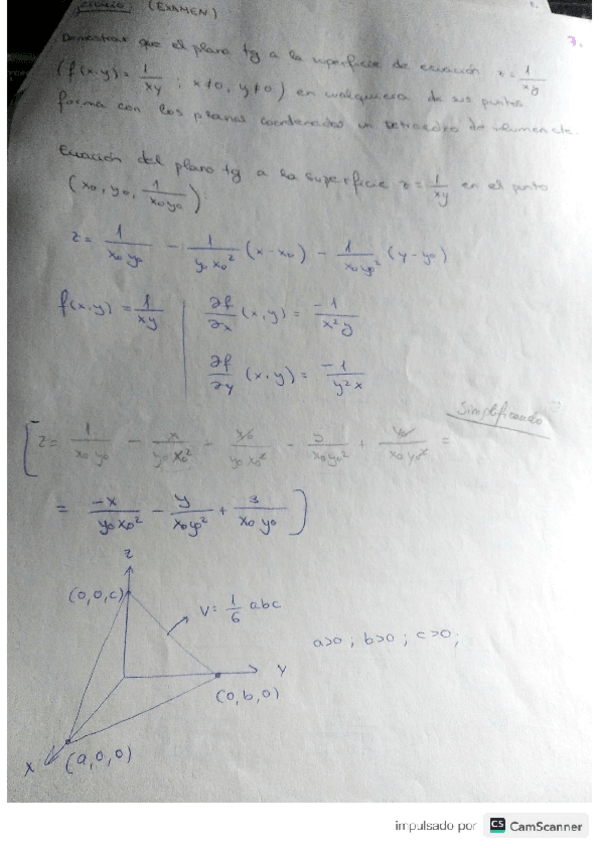 (EXAMEN)
7.
Demostrar que el plano tg a la superficie de ecuación z = 1/xy
(f(x,y) = 1/xy ; x≠0, y≠0) en cualquiera de sus puntos
forma con los planos coordenados un tetraedro de volumen cte.
Ecuación del plano tg a la superficie z = 1/xy en el punto
(x₀, y₀, 1/x₀y₀):
z = 1/x₀y₀ − 1/y₀x₀² (x−x₀) − 1/x₀y₀² (y−y₀)
f(x,y) = 1/xy | ∂f/∂x (x,y) = −1/x²y
∂f/∂y (x,y) = −1/y²x
Simplificando
[z = 1/x₀y₀ − x/y₀x₀² −
= −x/y₀x₀² − y/x₀y₀² + 3/x₀y₀ ]
z
(0,0,c)
V = 1/6 abc
a>0 ; b>0 ; c>0 ;
y
(0,b,0)
x
(a,0,0)
impulsado por CS CamScanner